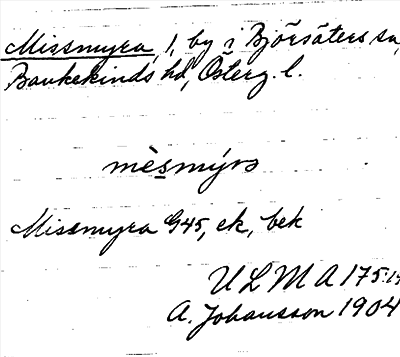 Missmyra, 1, by i Björsäters sn,
Bankekinds hd, Österg. l.
mèsmýra
Missmyra G45, ek, bek
ULMA 175:19
A. Johansson 1904